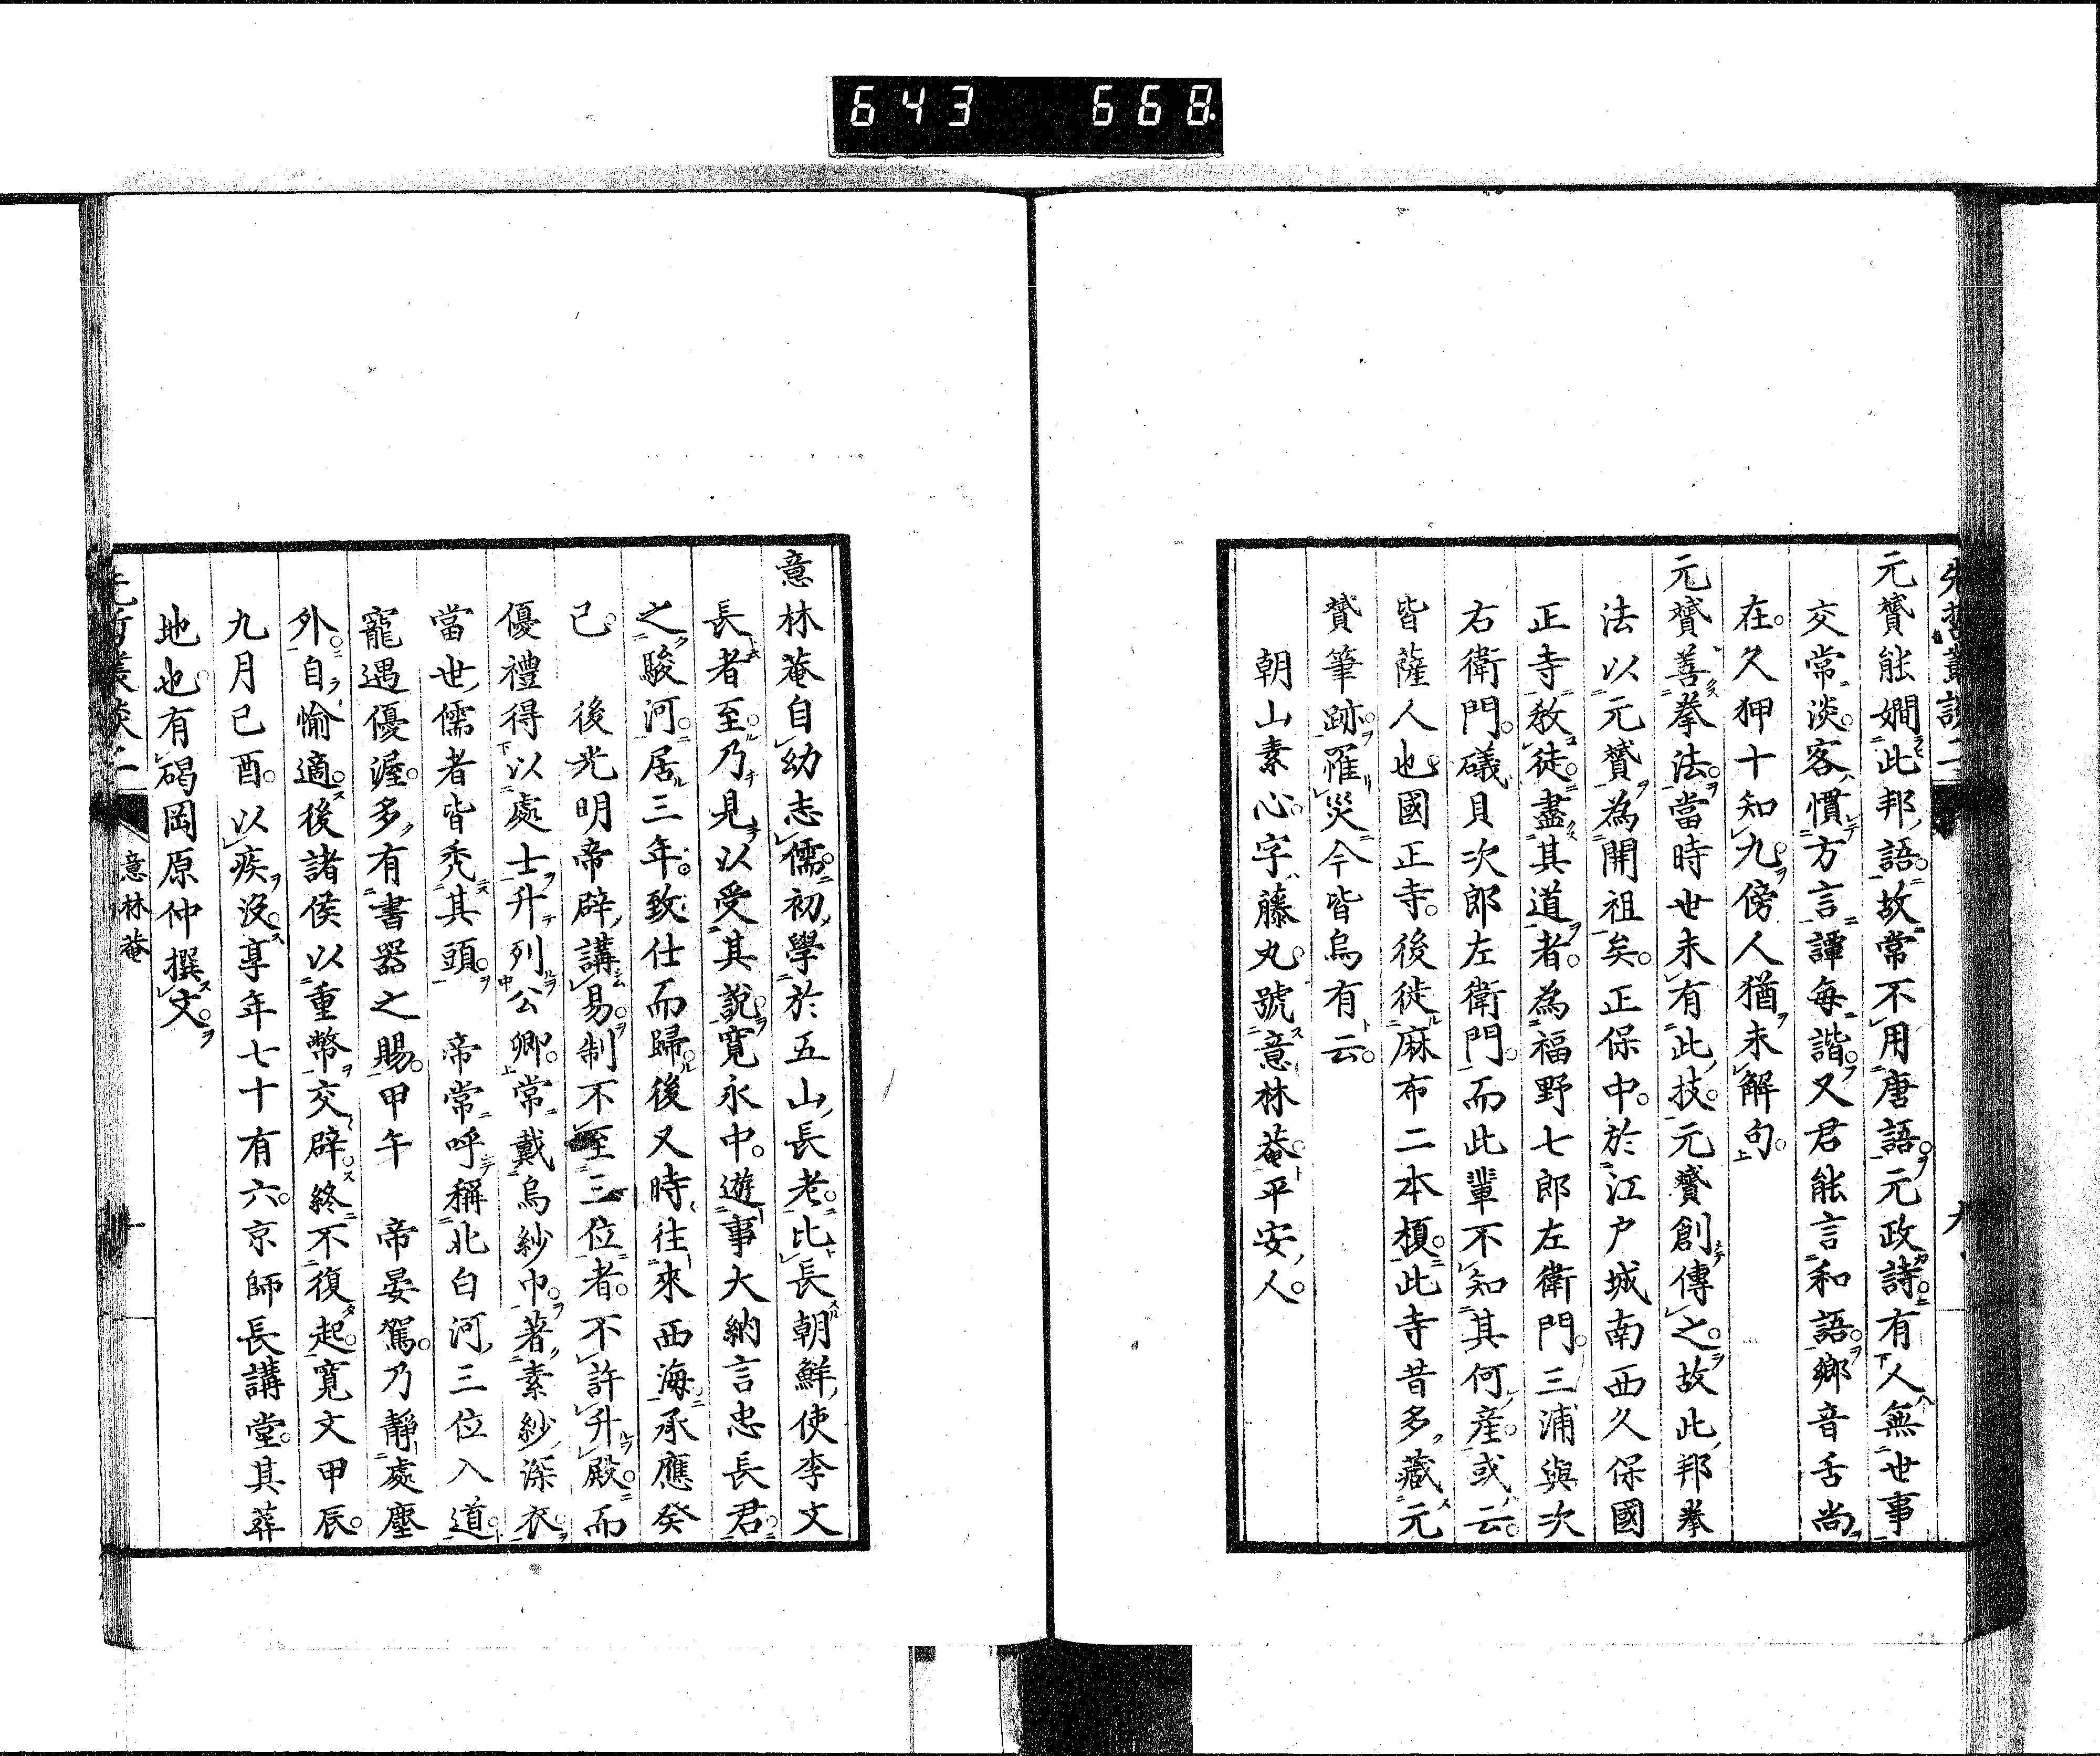 643 668
元贇能嫺此邦語故常不用唐語元政詩有人無世事
交常淡客慣方言譚每諧又君能言和語鄉音舌尚
在久狎十知九傍人猶未解句
元贇善拳法當時世未有此技元贇創傳之故此邦拳
法以元贇為開祖矣正保中於江戶城南西久保國
正寺教徒盡其道者為福野七郎左衛門三浦與次
右衛門礒貝次郎左衛門而此輩不知其何產或云
皆薩人也國正寺後徙麻布二本榎此寺昔多藏元
贇筆跡罹災今皆烏有云
朝山素心字藤丸號意林菴平安人
意林菴自幼志儒初學於五山長老比長朝鮮使李文
長者至乃見以受其說寬永中遊事大納言忠長君
之駿河居三年致仕而歸後又時往來西海承應癸
巳 後光明帝辟講易制不至三位者不許升殿而
優禮得以處士升列公卿常戴烏紗巾著素紗深衣
當世儒者皆禿其頭 帝常呼稱北白河三位入道
寵遇優渥多有書器之賜甲午 帝晏駕乃靜處塵
外自愉適後諸侯以重幣交辟終不復起寬文甲辰
九月己酉以疾沒享年七十有六京師長講堂其葬
地也有碣岡原仲撰文
意林菴